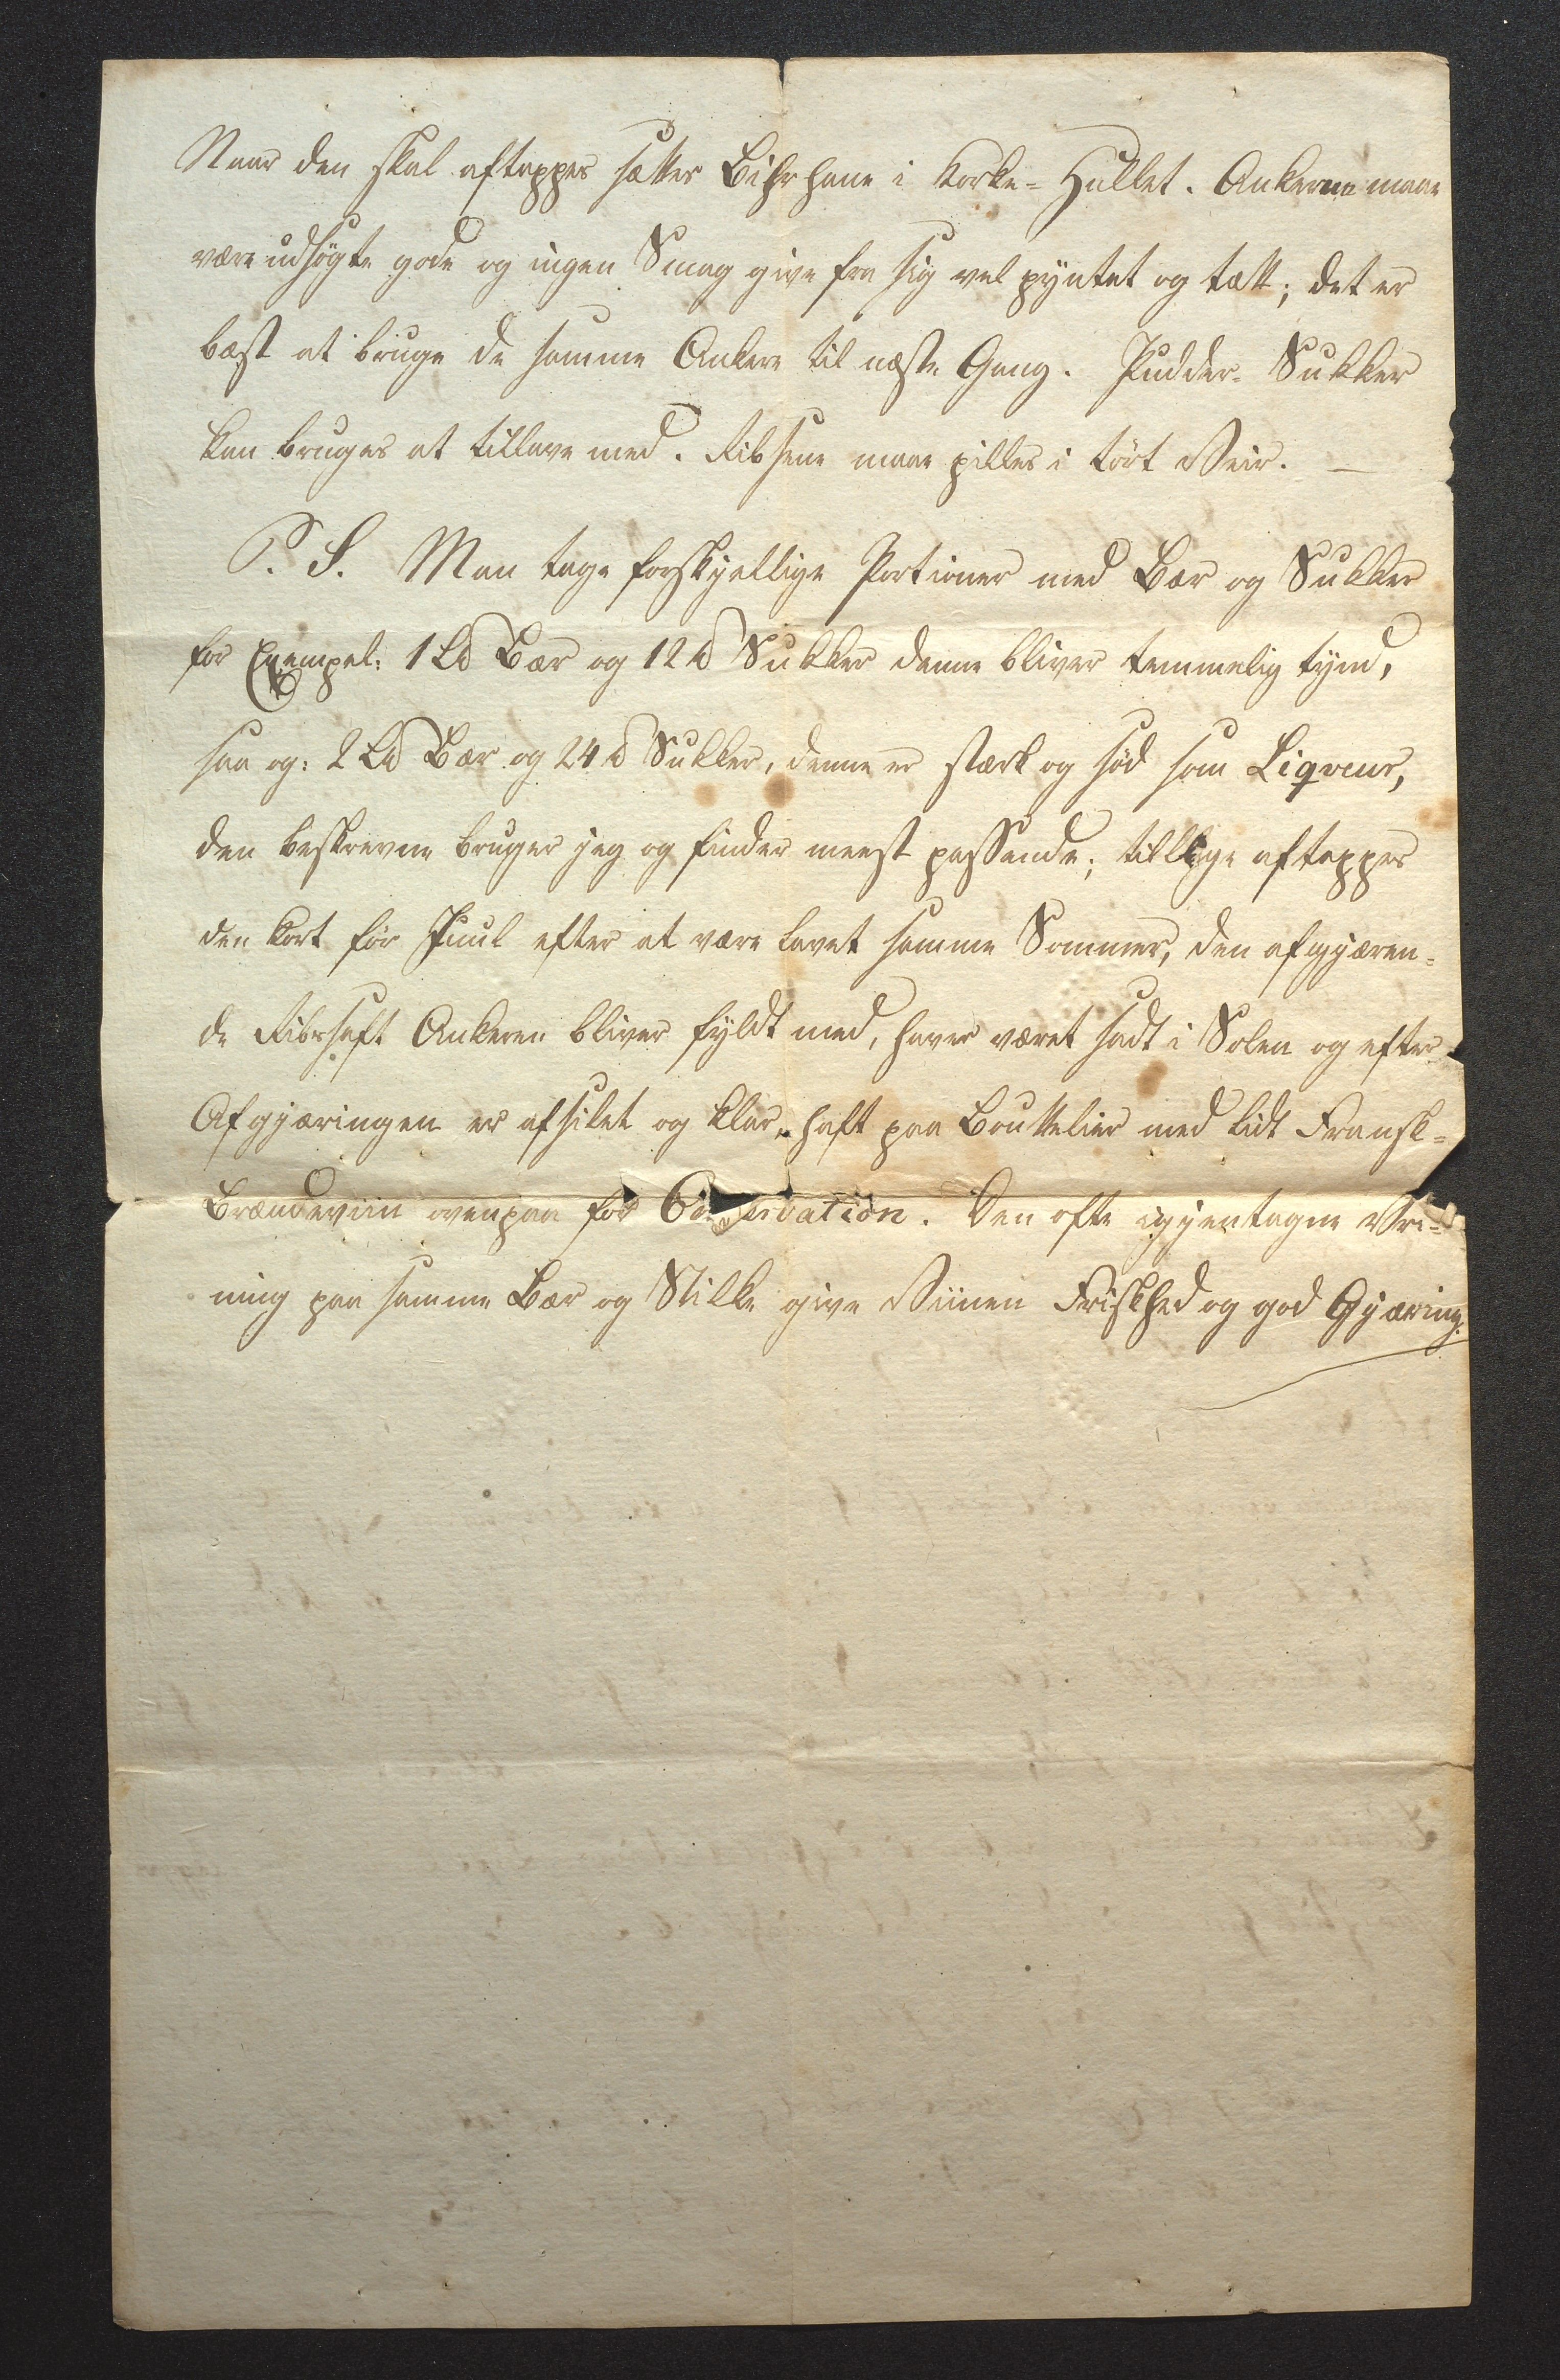 Naar den skal aftappes sættes Bihrhane i Korke-Hullet. Ankerne maae
være udsögte gode og ingen Smag give fra sig vel pyntet og tætt; det er
bæst at bruge de samme Ankere til næste Gang. Pudder-Sukker
kan bruges at tillave med. Ribsene maae pilles i tört Veir. —
P. S. Man tage forskjellige Portioner med Bær og Sukker
for Exempel: 1 Ld Bær og 12 d Sukker denne bliver temmelig tynd,
saa og: 2 Ld Bær og 24 d Sukker, denne er stærk og söd som Liqveur,
den beskrevne bruger jeg og finder meest passende; tillige aftappes
den kort för Juul efter at være lavet samme Sommer, den afgjæren-
de Ribssaft Ankeren bliver fyldt med, haver været sadt i Solen og efter
Afgjæringen er afsilet og klar, haft paa Bouttelier med lidt Fransk-
Brændeviin ovenpaa for Conservation. Den ofte igjentagne Vri-
ning paa samme Bær og Stilke give Viinen Friskhed og god Gjæring.